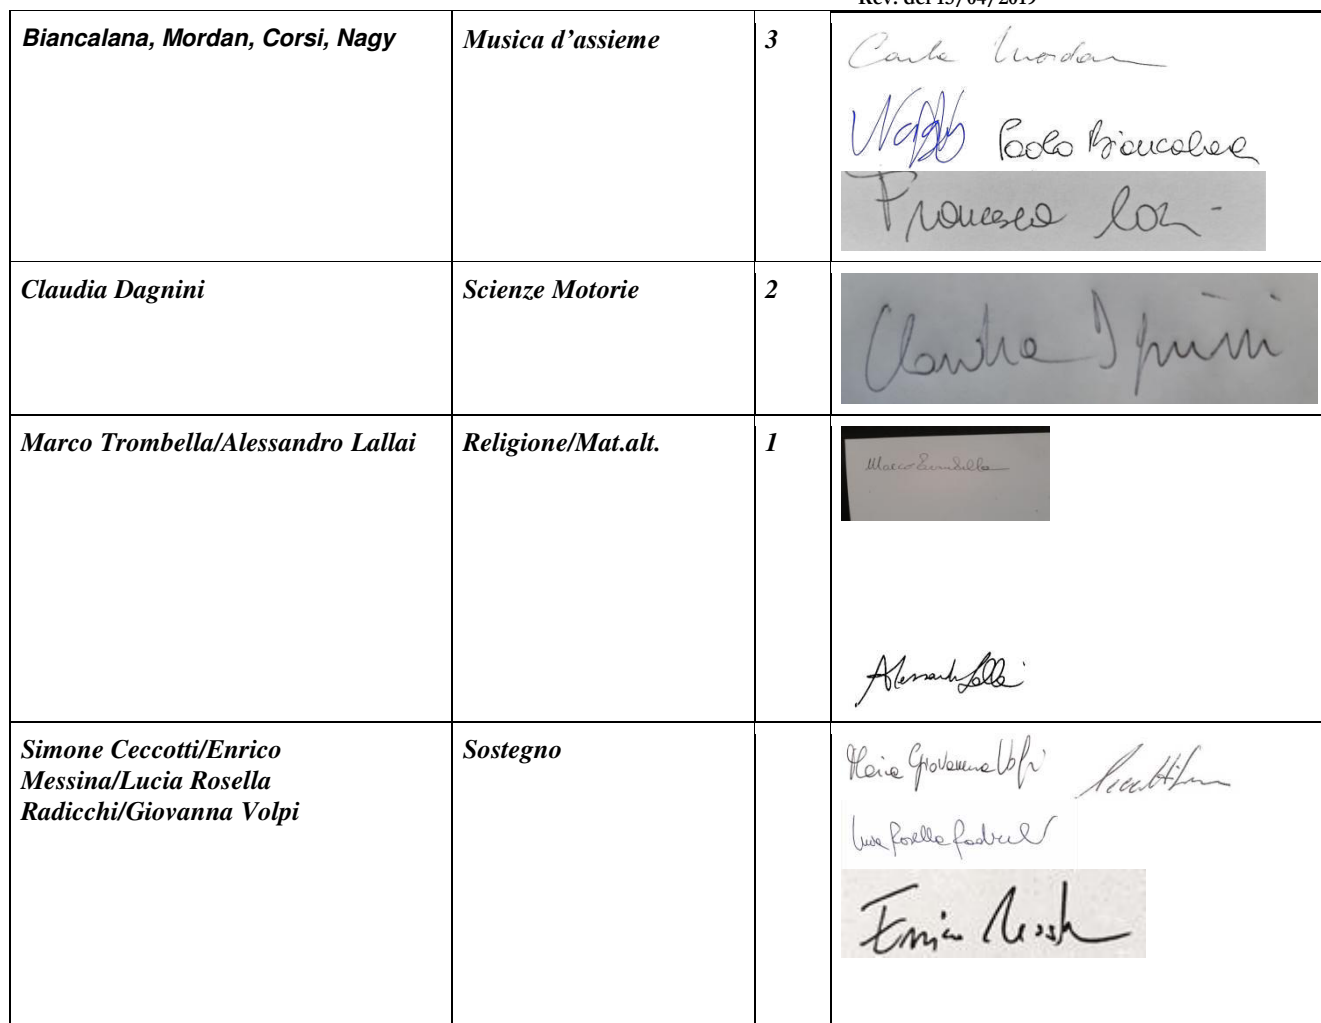 Rev. del 15/04/2019
Biancalana, Mordan, Corsi, Nagy
Musica d’assieme
3
Carla Mordan
Nagy
Paolo Biancalana
Francesca
Claudia Dagnini
Scienze Motorie
2
Claudia
Marco Trombella/Alessandro Lallai
Religione/Mat.alt.
1
Marco Trombella
Alessandro Lallai
Simone Ceccotti/Enrico
Messina/Lucia Rosella
Radicchi/Giovanna Volpi
Sostegno
Maria Giovanna Volpi
Lucia Rosella Radicchi
Enrico